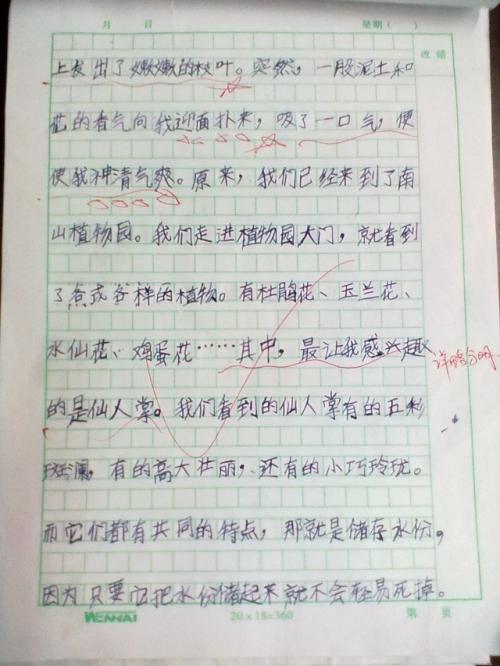 月 日 星期（ ）
改错
上发出了嫩嫩的枝叶。突然，一股泥土和
花的香气向我迎面扑来，吸了一口气，便
使我神清气爽。原来，我们已经来到了南
山植物园。我们走进植物园大门，就看到
了各式各样的植物。有杜鹃花、玉兰花、
水仙花、鸡蛋花……其中，最让我感兴趣
详略分明
的是仙人掌。我们看到的仙人掌有的五彩
斑斓，有的高大壮丽，还有的小巧玲珑。
而它们都有共同的特点，那就是储存水份。
因为只要它把水份储起来就不会轻易死掉。
WENHAI 20×18=360 第 页